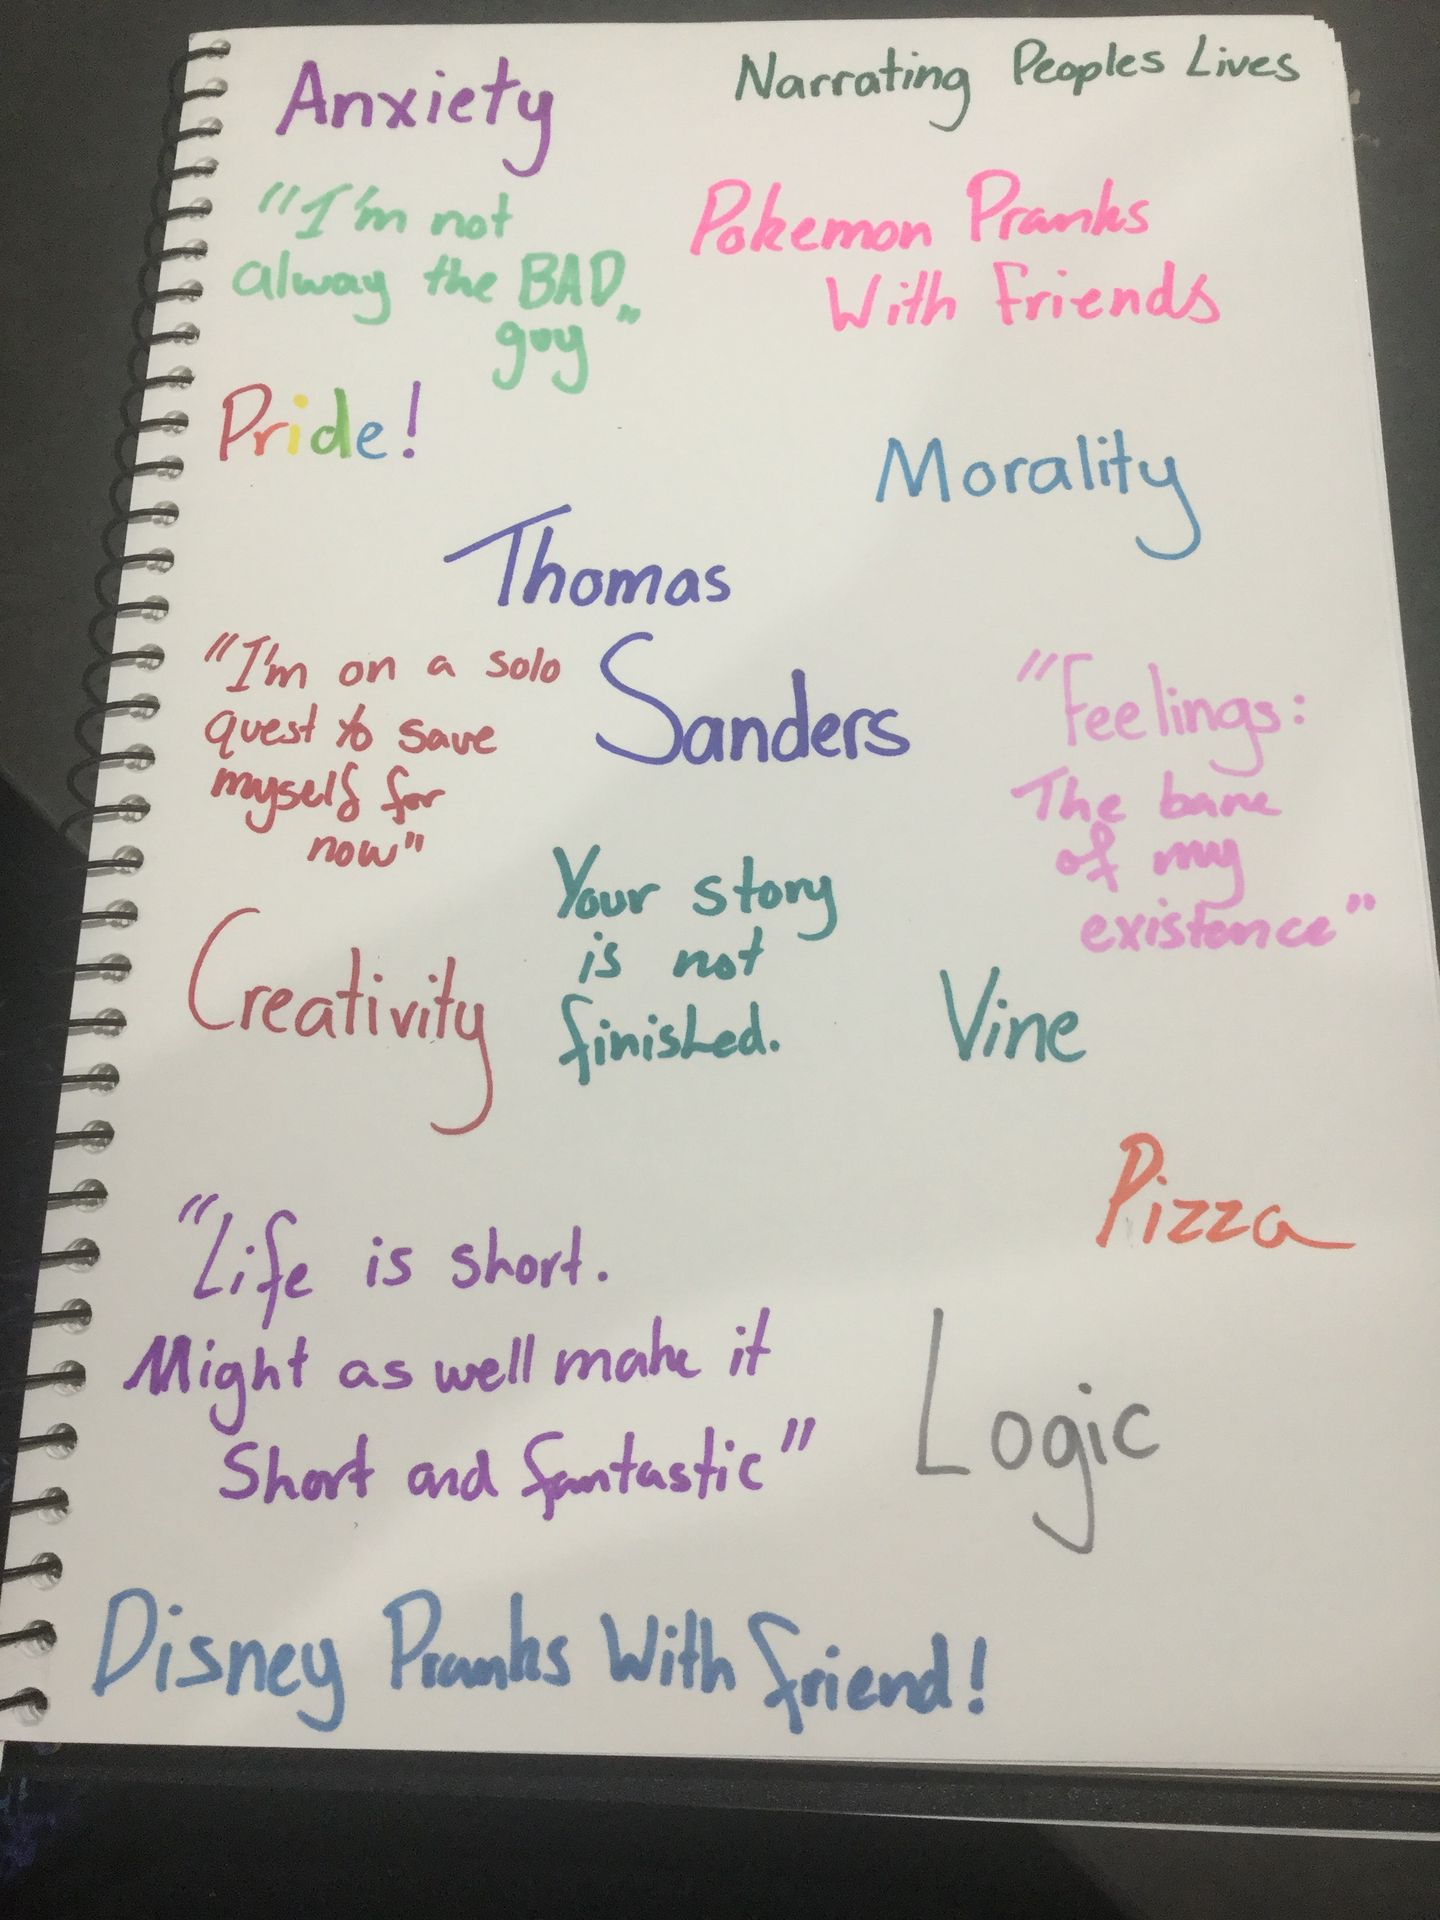 Anxiety
Narrating Peoples Lives
"I'm not
alway the BAD
guy"
Pokemon Pranks
With Friends
Pride!
Morality
Thomas
Sanders
"I'm on a solo
quest to save
myself for
now"
"Feelings:
The bane
of my
existence"
Your story
is not
finished.
Creativity
Vine
Pizza
"Life is short.
Might as well make it
Short and fantastic"
Logic
Disney Pranks With friend!